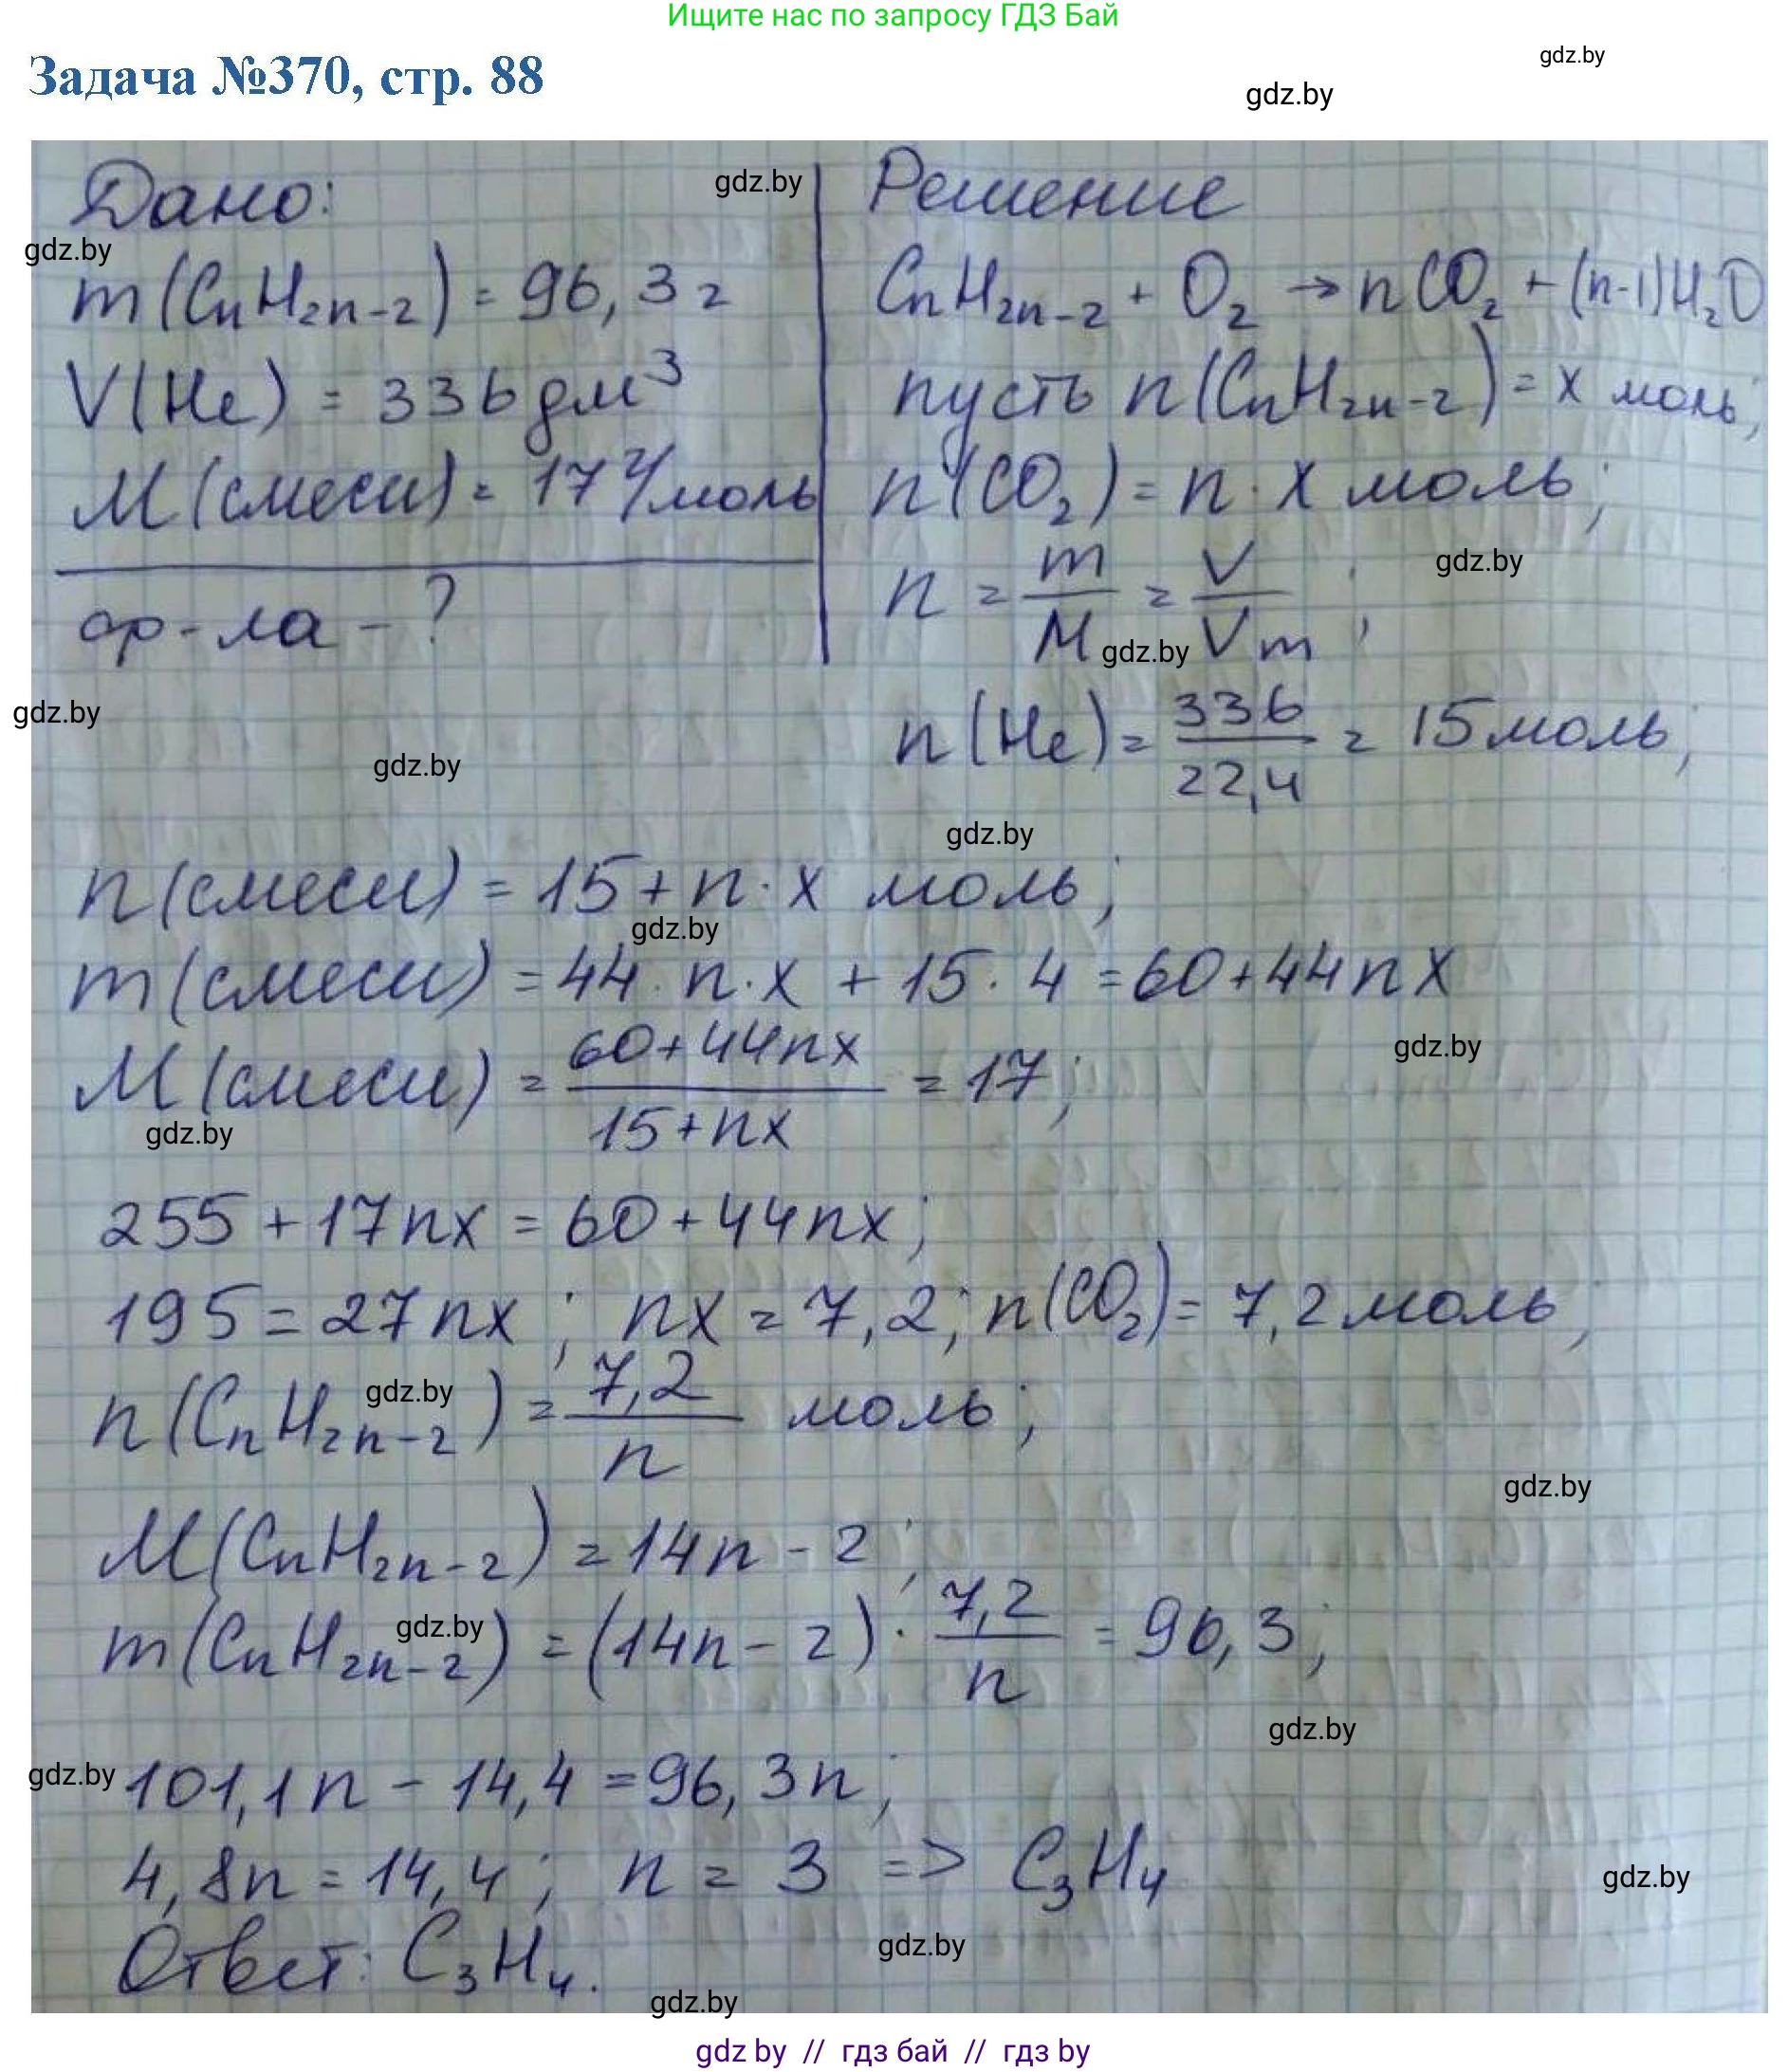 Ищите нас по запросу ГДЗ Бай
Задача №370, стр. 88
gdz.by
gdz.by
Дано:
gdz.by
gdz.by
m(CnH2n-2) = 96,3 г
V(He) = 336 дм³
M(смеси) = 17 г/моль
ф-ла - ?
Решение
CnH2n-2 + O2 → nCO2 + (n-1)H2O
пусть n(CnH2n-2) = x моль;
n(CO2) = n · x моль;
gdz.by
n = m/M = V/Vm;
gdz.by
gdz.by
n(He) = 336/22,4 = 15 моль;
gdz.by
gdz.by
n(смеси) = 15 + n · x моль;
gdz.by
m(смеси) = 44 · n · x + 15 · 4 = 60 + 44nx
gdz.by
M(смеси) = 60+44nx/15+nx = 17;
gdz.by
255 + 17nx = 60 + 44nx;
195 = 27nx; nx = 7,2; n(CO2) = 7,2 моль;
gdz.by
n(CnH2n-2) = 7,2/n моль;
gdz.by
M(CnH2n-2) = 14n - 2;
gdz.by
m(CnH2n-2) = (14n - 2) · 7,2/n = 96,3;
gdz.by
gdz.by
101,1n - 14,4 = 96,3n;
4,8n = 14,4; n = 3 => C3H4
gdz.by
gdz.by
Ответ: C3H4.
gdz.by
gdz by // гдз бай // гдз by